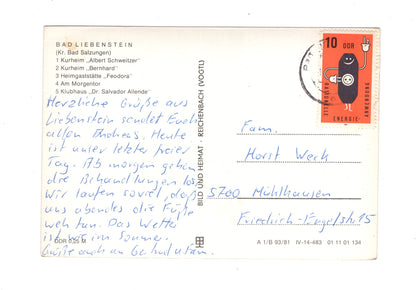 BAD LIEBENSTEIN
(Kr. Bad Salzungen)
1 Kurheim „Albert Schweitzer"
2 Kurheim „Bernhard"
3 Heimgaststätte „Feodora"
4 Am Morgentor
5 Klubhaus „Dr. Salvador Allende"
Herzliche Grüße aus
Liebenstein sendet Euch
allen Andreas. Heute
ist unser letzter freier
Tag. Ab morgen gehen
die Behandlungen los.
Wir laufen soviel, daß
uns abends die Füße
weh tun. Das Wetter
ist wie im Sommer.
Grüße auch an
DDR 0,25 M
BILD UND HEIMAT · REICHENBACH (VOGTL)
10 DDR
RATIONELLE
ENERGIE-
ANWENDUNG
Fam.
Horst Weck
5700 Mühlhausen
Friedrich-Engelsstr 15
A 1/B 93/81 IV-14-483 01 11 01 134